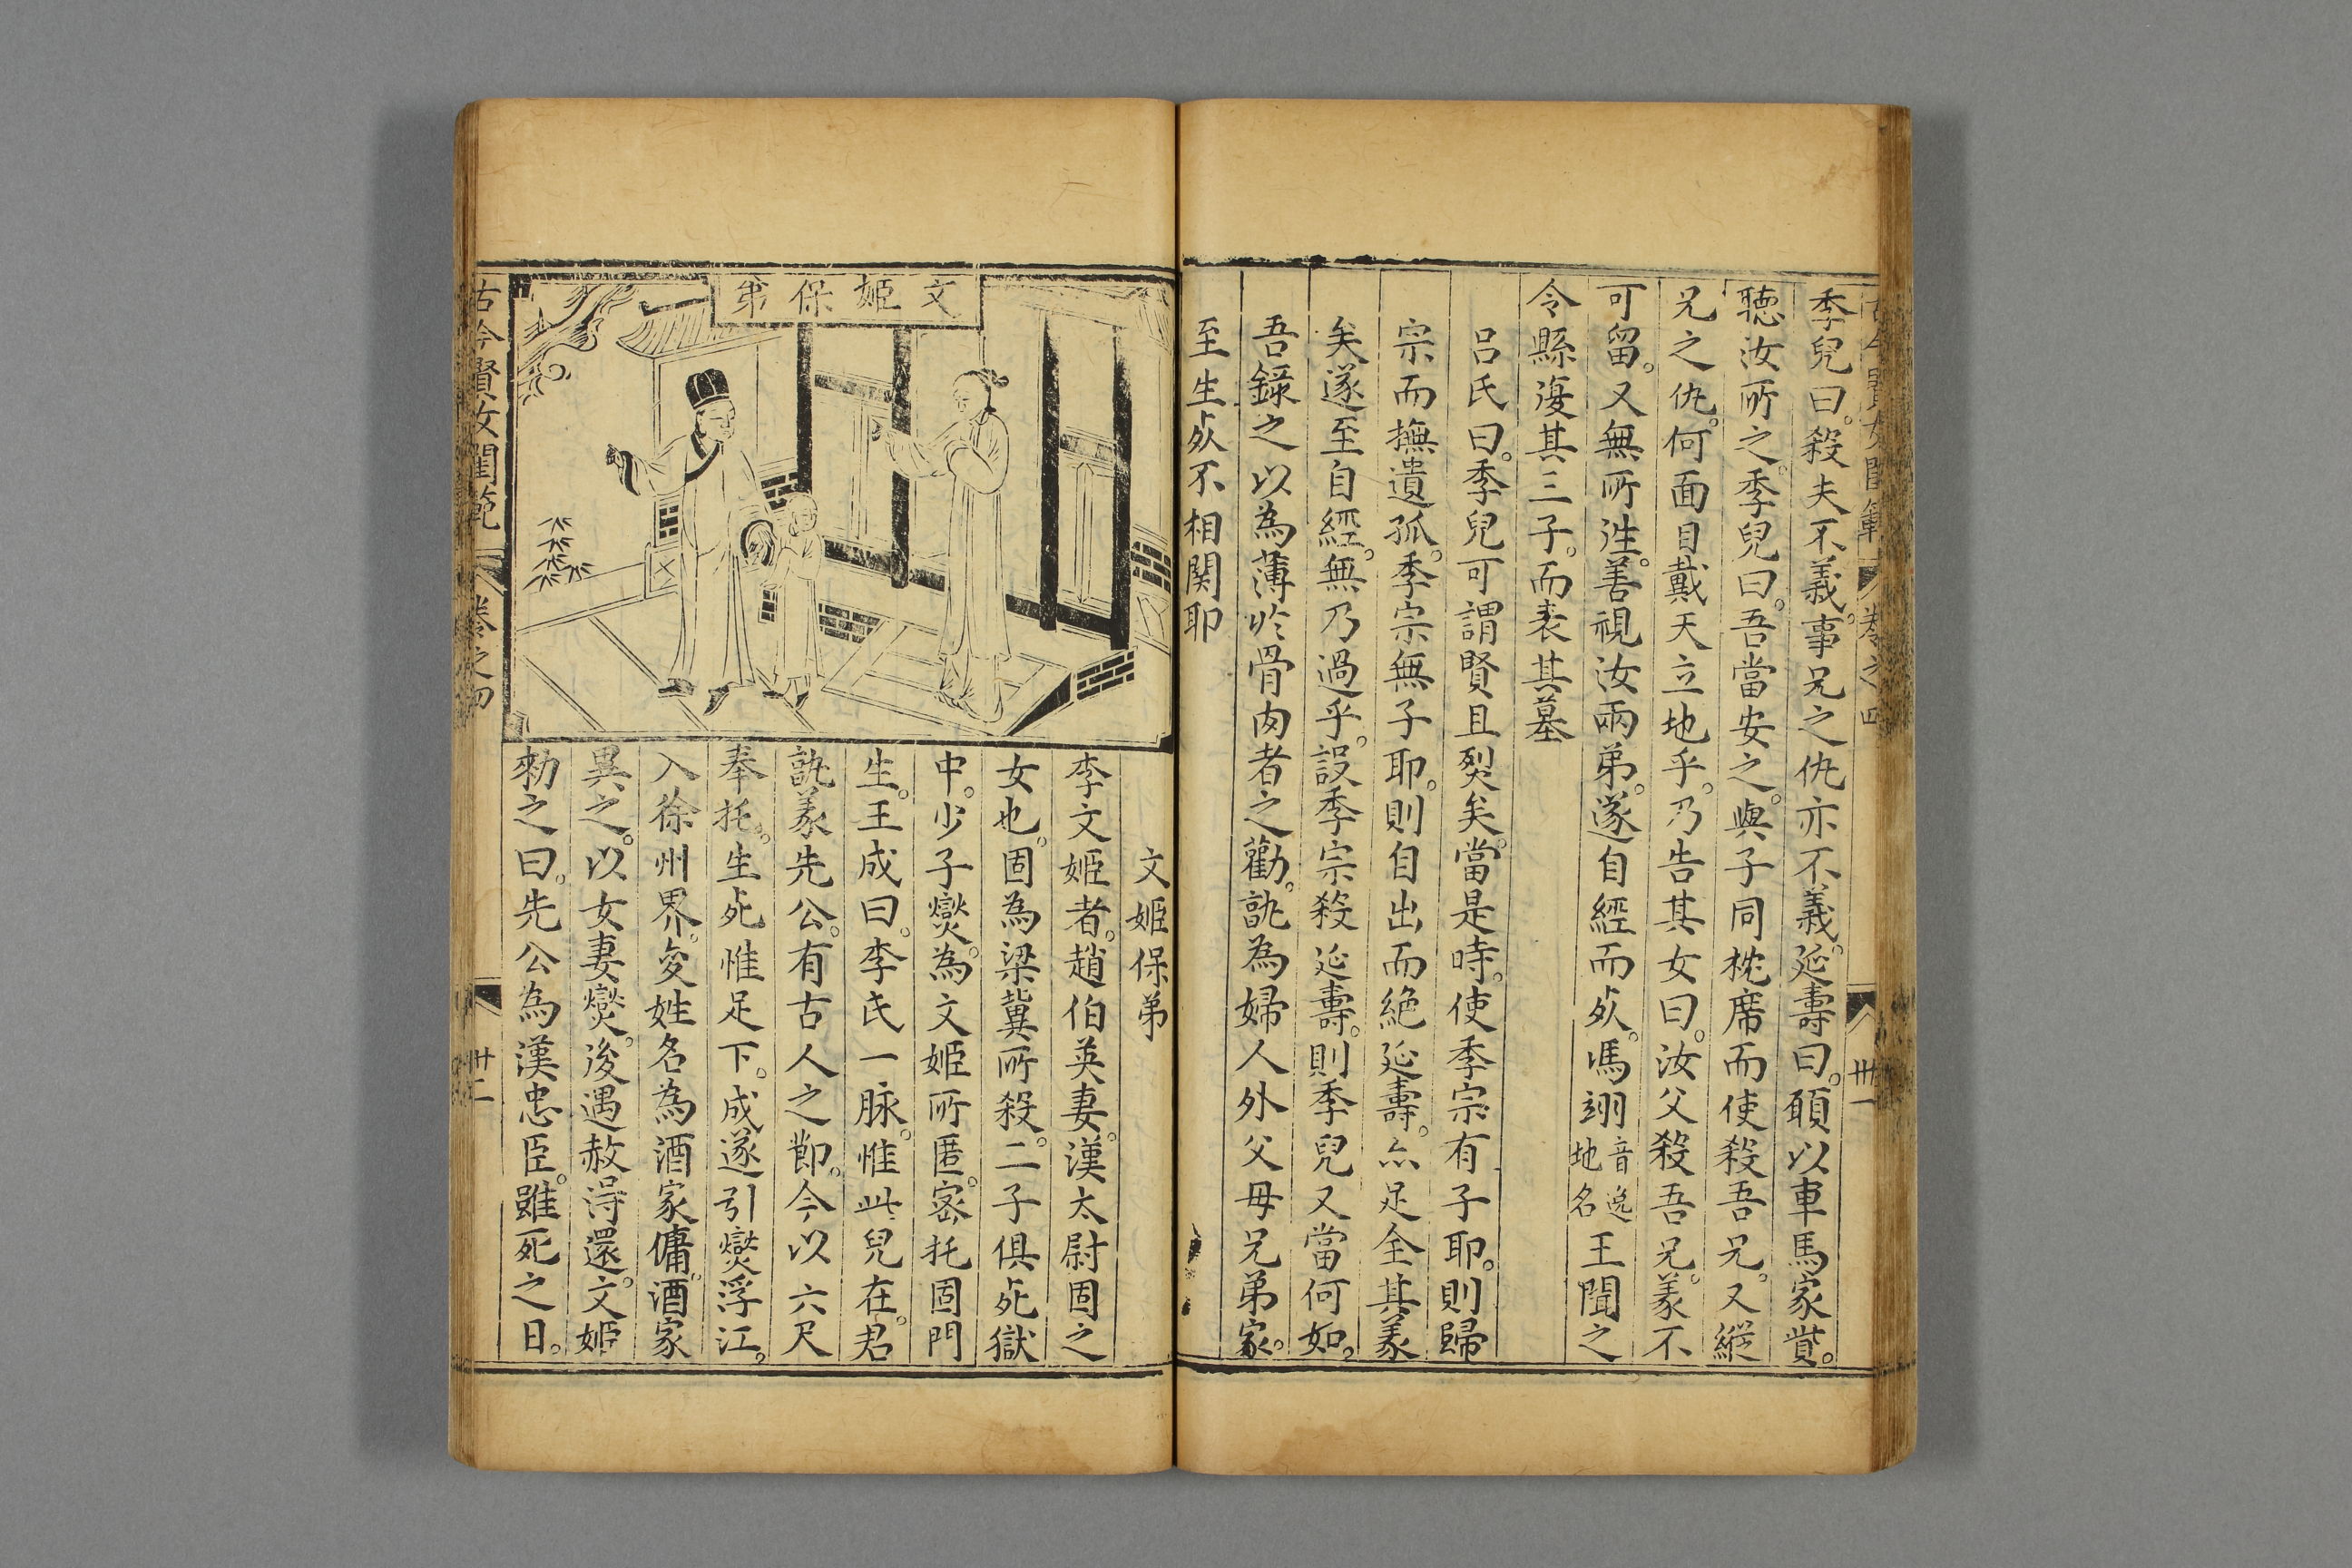 古今賢女閨範
卷之四
卅一
季兒曰。殺夫不義。事兄之仇亦不義。延壽曰。願以車馬家貲。
聽汝所之。季兒曰。吾當安之。與子同枕席而使殺吾兄。又縱
兄之仇。何面目戴天立地乎。乃告其女曰。汝父殺吾兄。義不
可留。又無所徃。善視汝兩弟。遂自經而死。馮翊音逸地名王聞之
令縣復其三子。而表其墓
呂氏曰。季兒可謂賢且烈矣。當是時。使季宗有子耶。則歸
宗而撫遺孤。季宗無子耶。則自出而絶延壽。亦足全其義
矣遂至自經。無乃過乎。設季宗殺延壽。則季兒又當何如。
吾錄之以為薄於骨肉者之勸。訛為婦人外父母兄弟家。
至生死不相関耶
文姬保弟
文姬保弟
李文姬者。趙伯英妻。漢太尉固之
女也。固為梁冀所殺。二子俱死獄
中。少子燮。為文姬所匿。密托固門
生。王成曰。李氏一脉。惟此兒在。君
執義先公。有古人之節。今以六尺
奉托。生死惟足下。成遂引燮浮江。
入徐州界。変姓名為酒家傭。酒家
異之。以女妻燮。後遇赦得還。文姬
勑之曰。先公為漢忠臣。雖死之日。
古今賢女閨範
卷之四
卅二